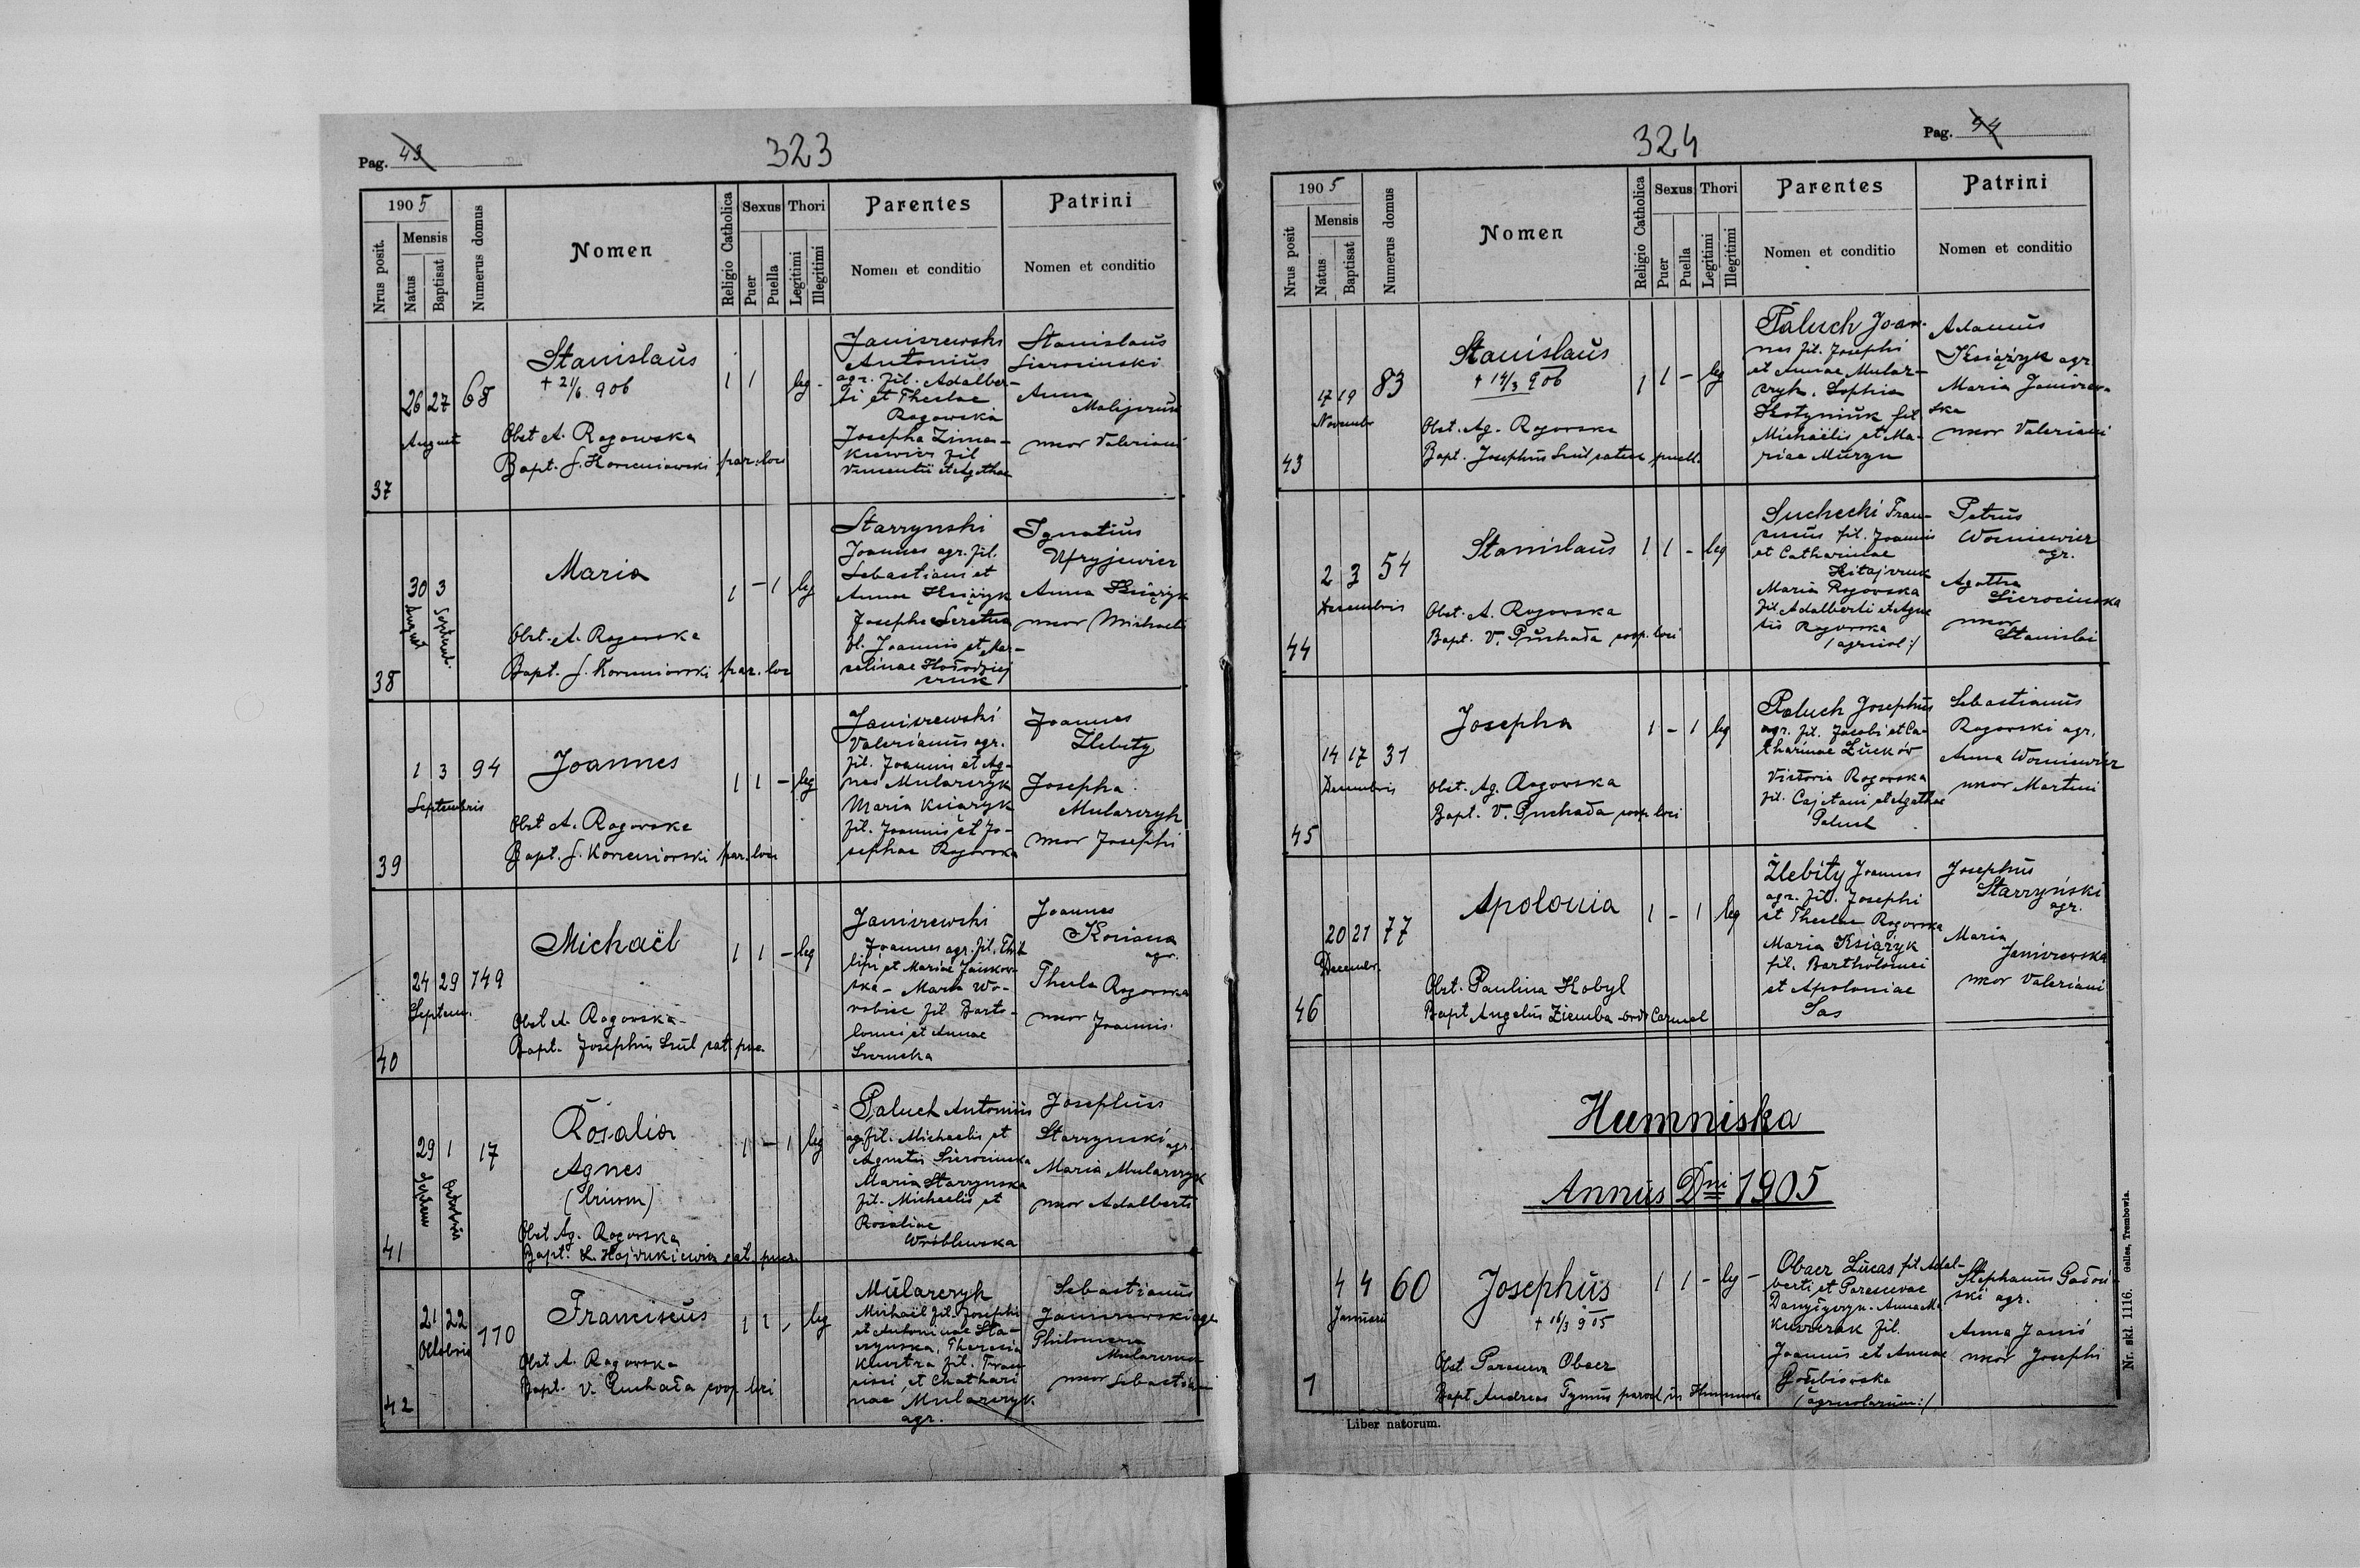 Pag. 43
323
1905
Nrus posit.
Mensis
Natus
Baptisat
Numerus domus
Nomen
Religio Catholica
Sexus
Puer
Puella
Thori
Legitimi
Illegitimi
Parentes
Nomen et conditio
Patrini
Nomen et conditio
37
26 27 68
August
Stanislaus
+ 21/6 906
Obst A. Rogowska
Bapt. J. Korzeniowski par. loci
1 1 leg -
Janiszewski
Antonius
agr. fil. Adalber-
ti et Theclae
Rogowska
Josepha Zima-
kiewicz fil
Vincentii et Agathae
Stanislaus
Sierocinski
Anna
uxor Valeriani
38
30 3
August Septemb.
Maria
Obst. A. Rogowska
Bapt. J. Korzeniowski par. loci
1 - 1 leg
Starzynski
Joannes agr. fil.
Sebastiani et
Annae Książyk
Josepha Seretna
fil. Joannis et Mar-
celinae
Ignatius
Anna Książyk
uxor Michaelis
39
1 3 94
Septembris
Joannes
Obst A. Rogowska
Bapt. J. Korzeniowski par. loci
1 1 - leg
Janiszewski
Valerianus agr.
fil. Joannis et Ag-
nes Mularczyk
Maria Książyk
fil. Joannis et Jo-
sephae Rogowska
Joannes
Żlebity
Josepha
Mularczyk
uxor Josephi
40
24 29 149
Septem.
Michaël
Obst A. Rogowska
Bapt. Josephus Szul cat. puer.
1 1 - leg
Janiszewski
Joannes agr. fil. Phi-
lipi et Mariae Jankow-
ska - Maria Wo-
robiec fil Barto-
lomei et Annae
Joannes
agr.
Thecla Rogowska
uxor Joannis
41
29 1 17
Septem Octobris
Rosalia
Agnes
Obst Ag. Rogowska
Bapt. L. Hajdukiewicz cat. puer.
1 - 1 leg
Paluch Antonius
agr. fil. Michaelis et
Agnetis Sierocinska
Maria Starzynska
fil. Michaelis et
Rosaliae
Wróblewska
Josephus
Starzynski agr.
Maria Mularczyk
uxor Adalberti
42
21 22 110
Octobris
Franciscus
Obst A. Rogowska
Bapt. V. Puchała coop. loci
1 1 - leg
Mularczyk
Michaël fil. Josephi
et Antoninae Sta-
rzynska, Theresia
fil. Fran
cisci et Chathari
nae Mularczyk
agr.
Sebastianus
Janiszewski agr
Philomena
Mularczyk
uxor Sebastiani
324
Pag. 44
1905
Nrus posit
Mensis
Natus
Baptisat
Numerus domus
Nomen
Religio Catholica
Sexus
Puer
Puella
Thori
Legitimi
Illegitimi
Parentes
Nomen et conditio
Patrini
Nomen et conditio
43
17 19 83
Novembr
Stanislaus
+ 14/3 906
Obst. Ag. Rogowska
Bapt. Josephus Szul
1 1 - leg
Paluch Joan-
nes fil. Josephi
et Annae Mular-
czyk. Sophia
fil
Michaëlis et Ma-
riae Muzyn
Adamus
Książyk agr
Maria Janiszew-
ska
uxor Valeriani
44
2 3 54
Decembris
Stanislaus
Obst. A. Rogowska
Bapt. V. Puchała coop. loci
1 1 - leg
Suchecki Fran-
ciscus fil. Joannis
et Catharinae
Maria Rogowska
fil. Adalberti et Agne
tis Rogowska
/agricol:/
Petrus
Wozniewicz
agr.
Agatha
Sierocinska
uxor
Stanislai
45
14 17 31
Decembris
Josepha
Obst. Ag. Rogowska
Bapt. V. Puchała coop. loci
1 - 1 leg
Paluch Josephus
agr. fil. Jacobi et Ca-
tharinae Łuckow
Victoria Rogowska
fil. Cajetani et Agathae
Paluch
Sebastianus
Rogowski agr.
Anna Wozniewicz
uxor Martini
46
20 21 77
Decembr.
Apolonia
Obst. Paulina Kobyl
Bapt Angelus Ziemba ord. Carmel
1 - 1 leg
Żlebity Joannes
agr. fil. Josephi
et Theclae Rogowska
Maria Książyk
fil. Bartholomei
et Apoloniae
Sas
Josephus
Starzyński
agr.
Maria
Janiszewska
uxor Valeriani
Humniska
Annus Dni 1905
1
4 4 60
Januarii
Josephus
+ 16/3 905
Obst. Obacz
Bapt Andreas Tymus paroch in Humniska
1 1 - leg -
Obacz Lucas fil Adal-
berti et Parascevae
fil.
Joannis et Annae
Gołubiowska
/agricolarum:/
Stephanus
ski agr.
Anna Janis
uxor Josephi
Liber natorum.
Nr. skl. 1116. Gelles, Trembowla.